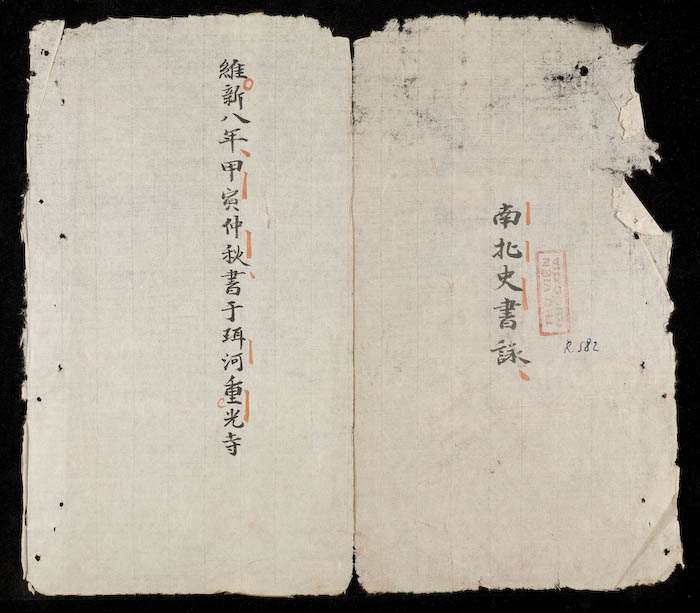 南北史書詠
R.582
維新八年甲寅仲秋書于珥河重光寺